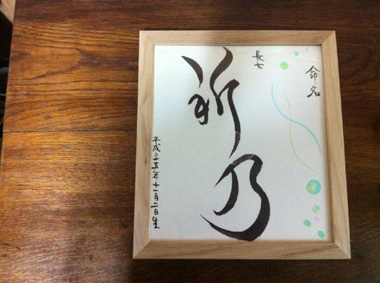 命名
長女
祈乃
平成二十五年十一月二日生